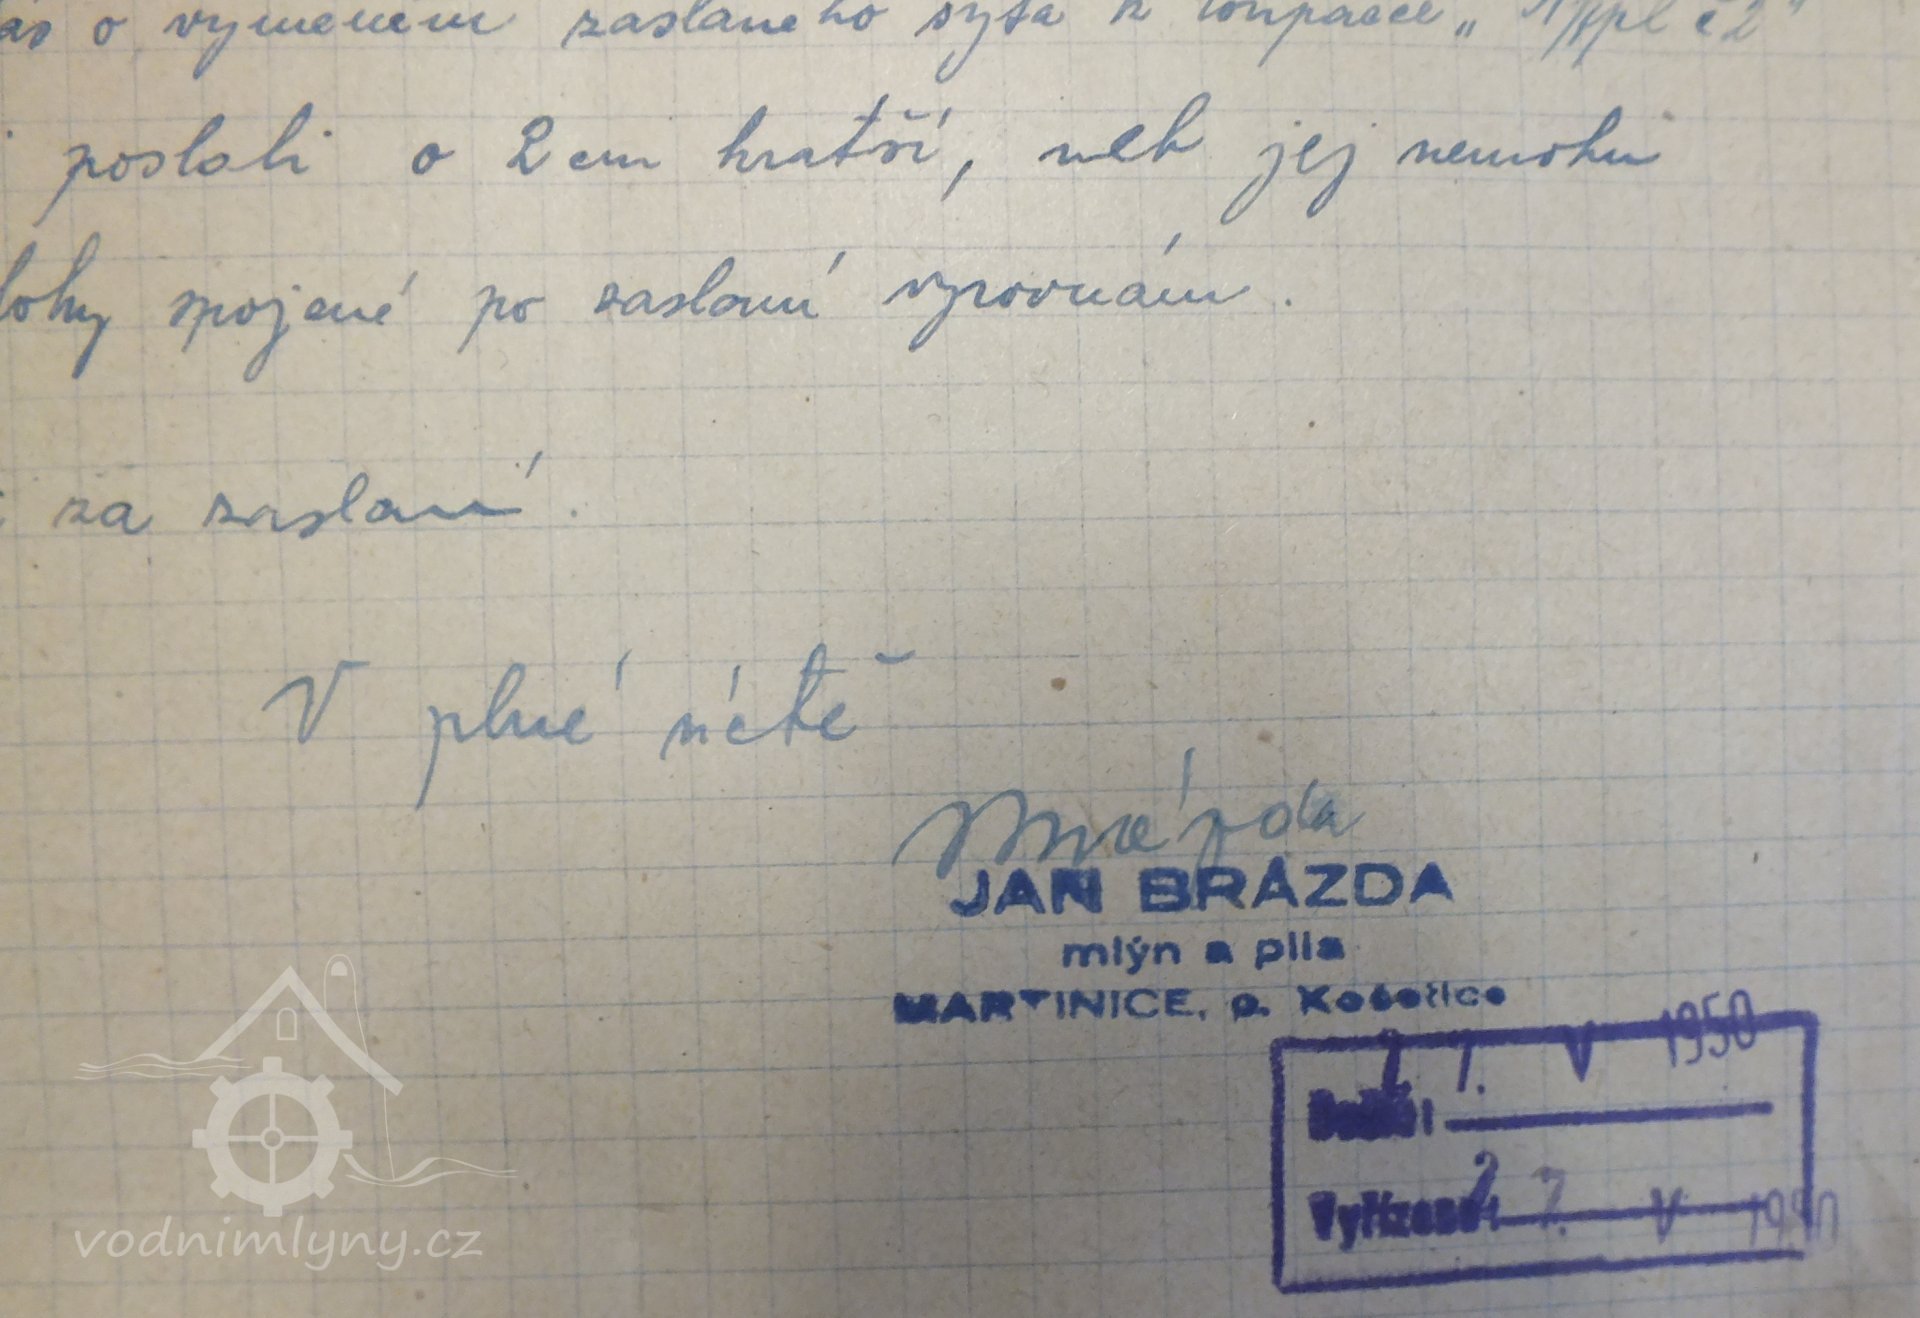 ás o vyměnění zaslaného sýta k loupačce „
poslali o 2 cm kratší, neb jej nemohu
lohy spojené po zaslaní vyrovnám.
za zaslaní.
V plné úctě
Brázda
JAN BRÁZDA
mlýn a pila
MARTINICE, p. Košetice
V 1950
Došlo:
Vyřízeno: 27. V 1950
vodnimlyny.cz